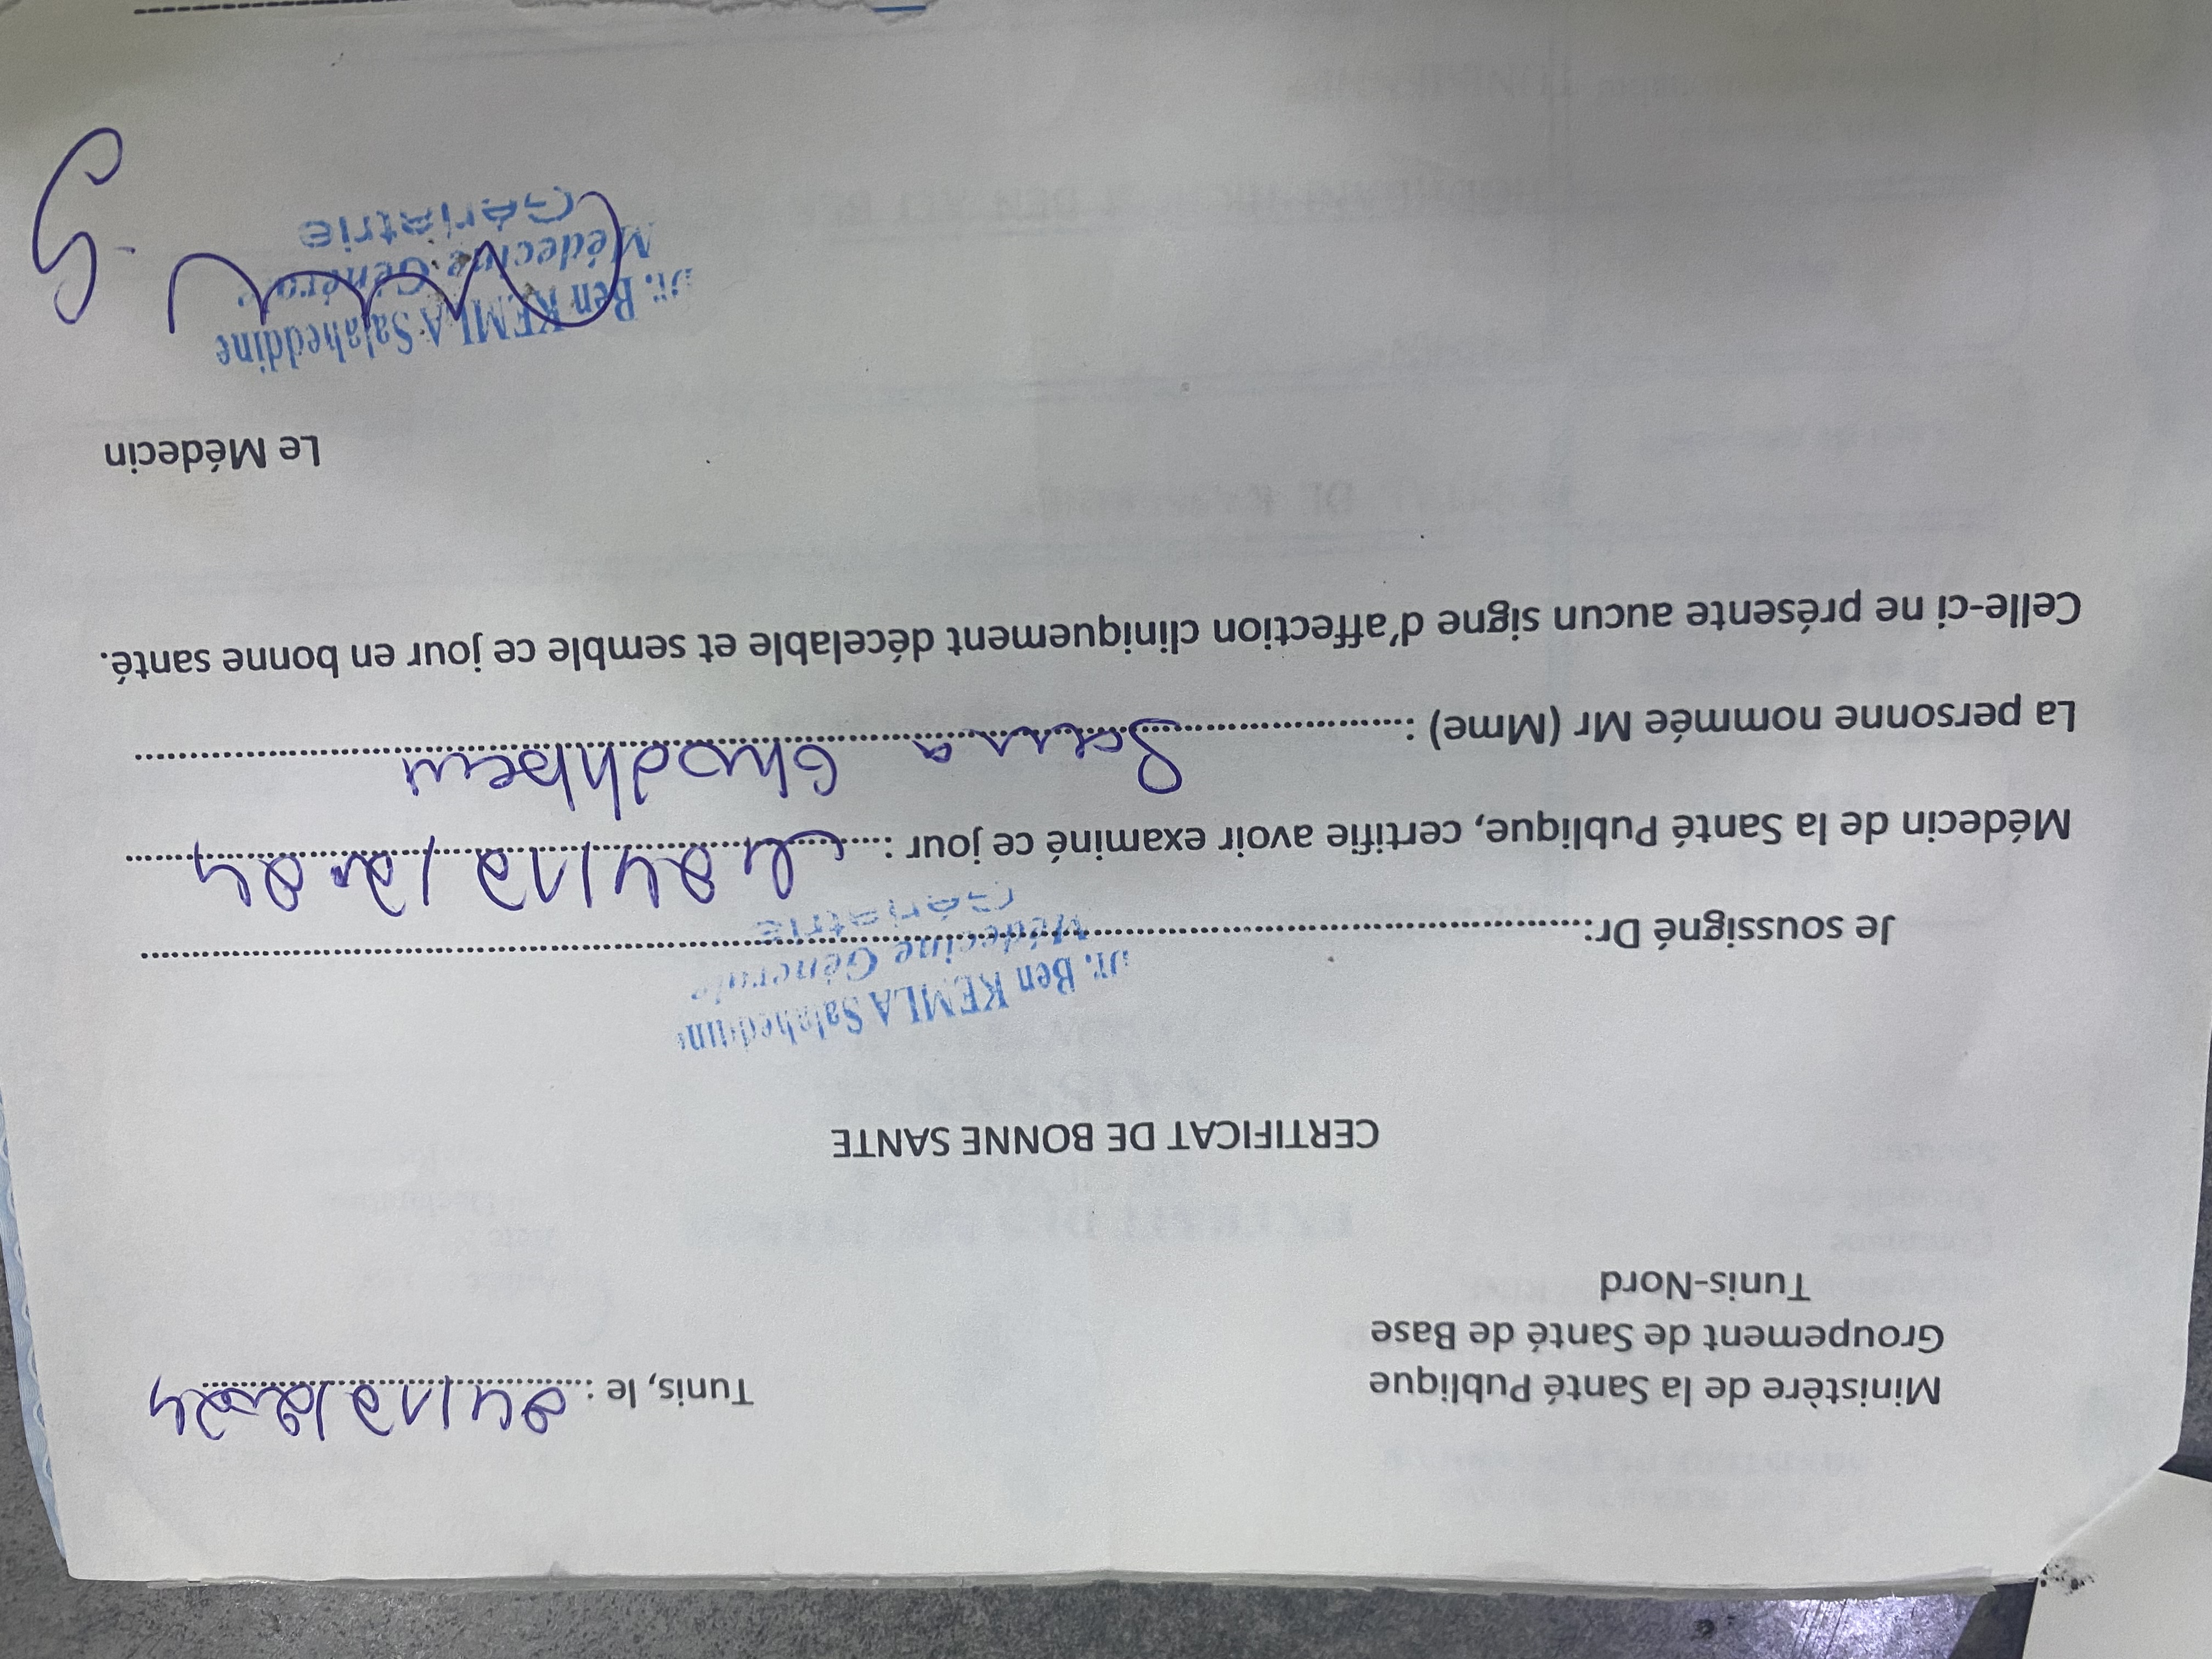 Ministère de la Santé Publique
Groupement de Santé de Base
Tunis-Nord
Tunis, le : 04/12/2024
CERTIFICAT DE BONNE SANTE
Dr. Ben KEMLA Salaheddine
Médecine Générale
Gériatrie
Je soussigné Dr:
Médecin de la Santé Publique, certifie avoir examiné ce jour : le 04/12/2024
La personne nommée Mr (Mme) :
Celle-ci ne présente aucun signe d'affection cliniquement décelable et semble ce jour en bonne santé.
Le Médecin
Dr. Ben KEMLA Salaheddine
Médecine Générale
Gériatrie